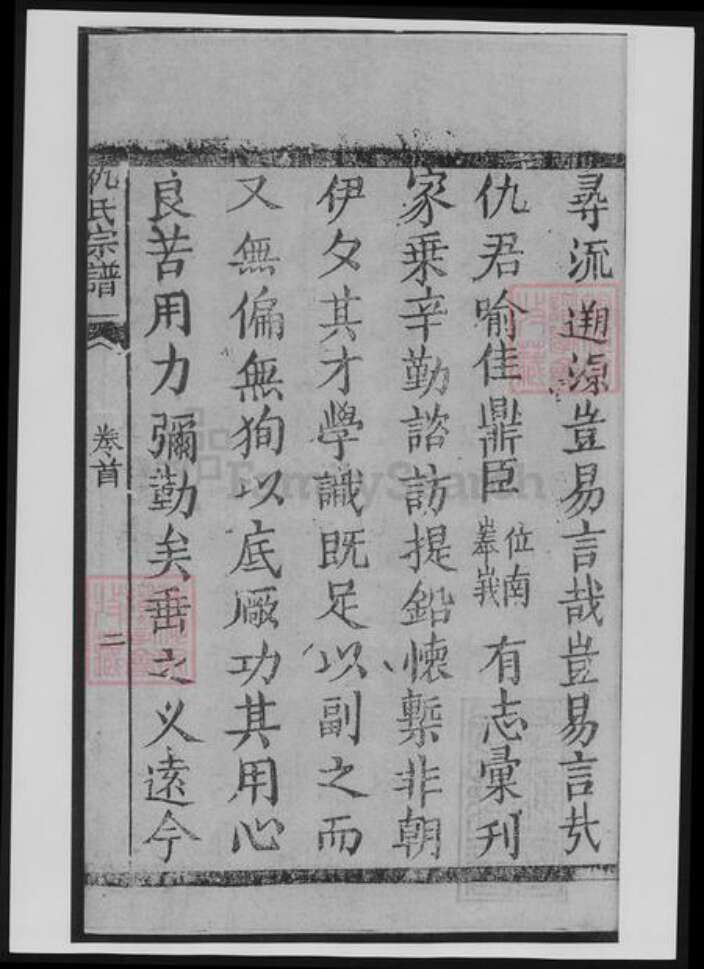 尋流遡源豈易言哉豈易言哉
仇君喻佳鼎臣位南峯峩有志彙刊
家乗辛勤諮訪提鉛懐槧非朝
伊夕其才學識既足以副之而
又無偏無狥以底厥功其用心
良苦用力彌勤矣垂之义遠今
仇氏宗譜 卷首 二
FamilySearch